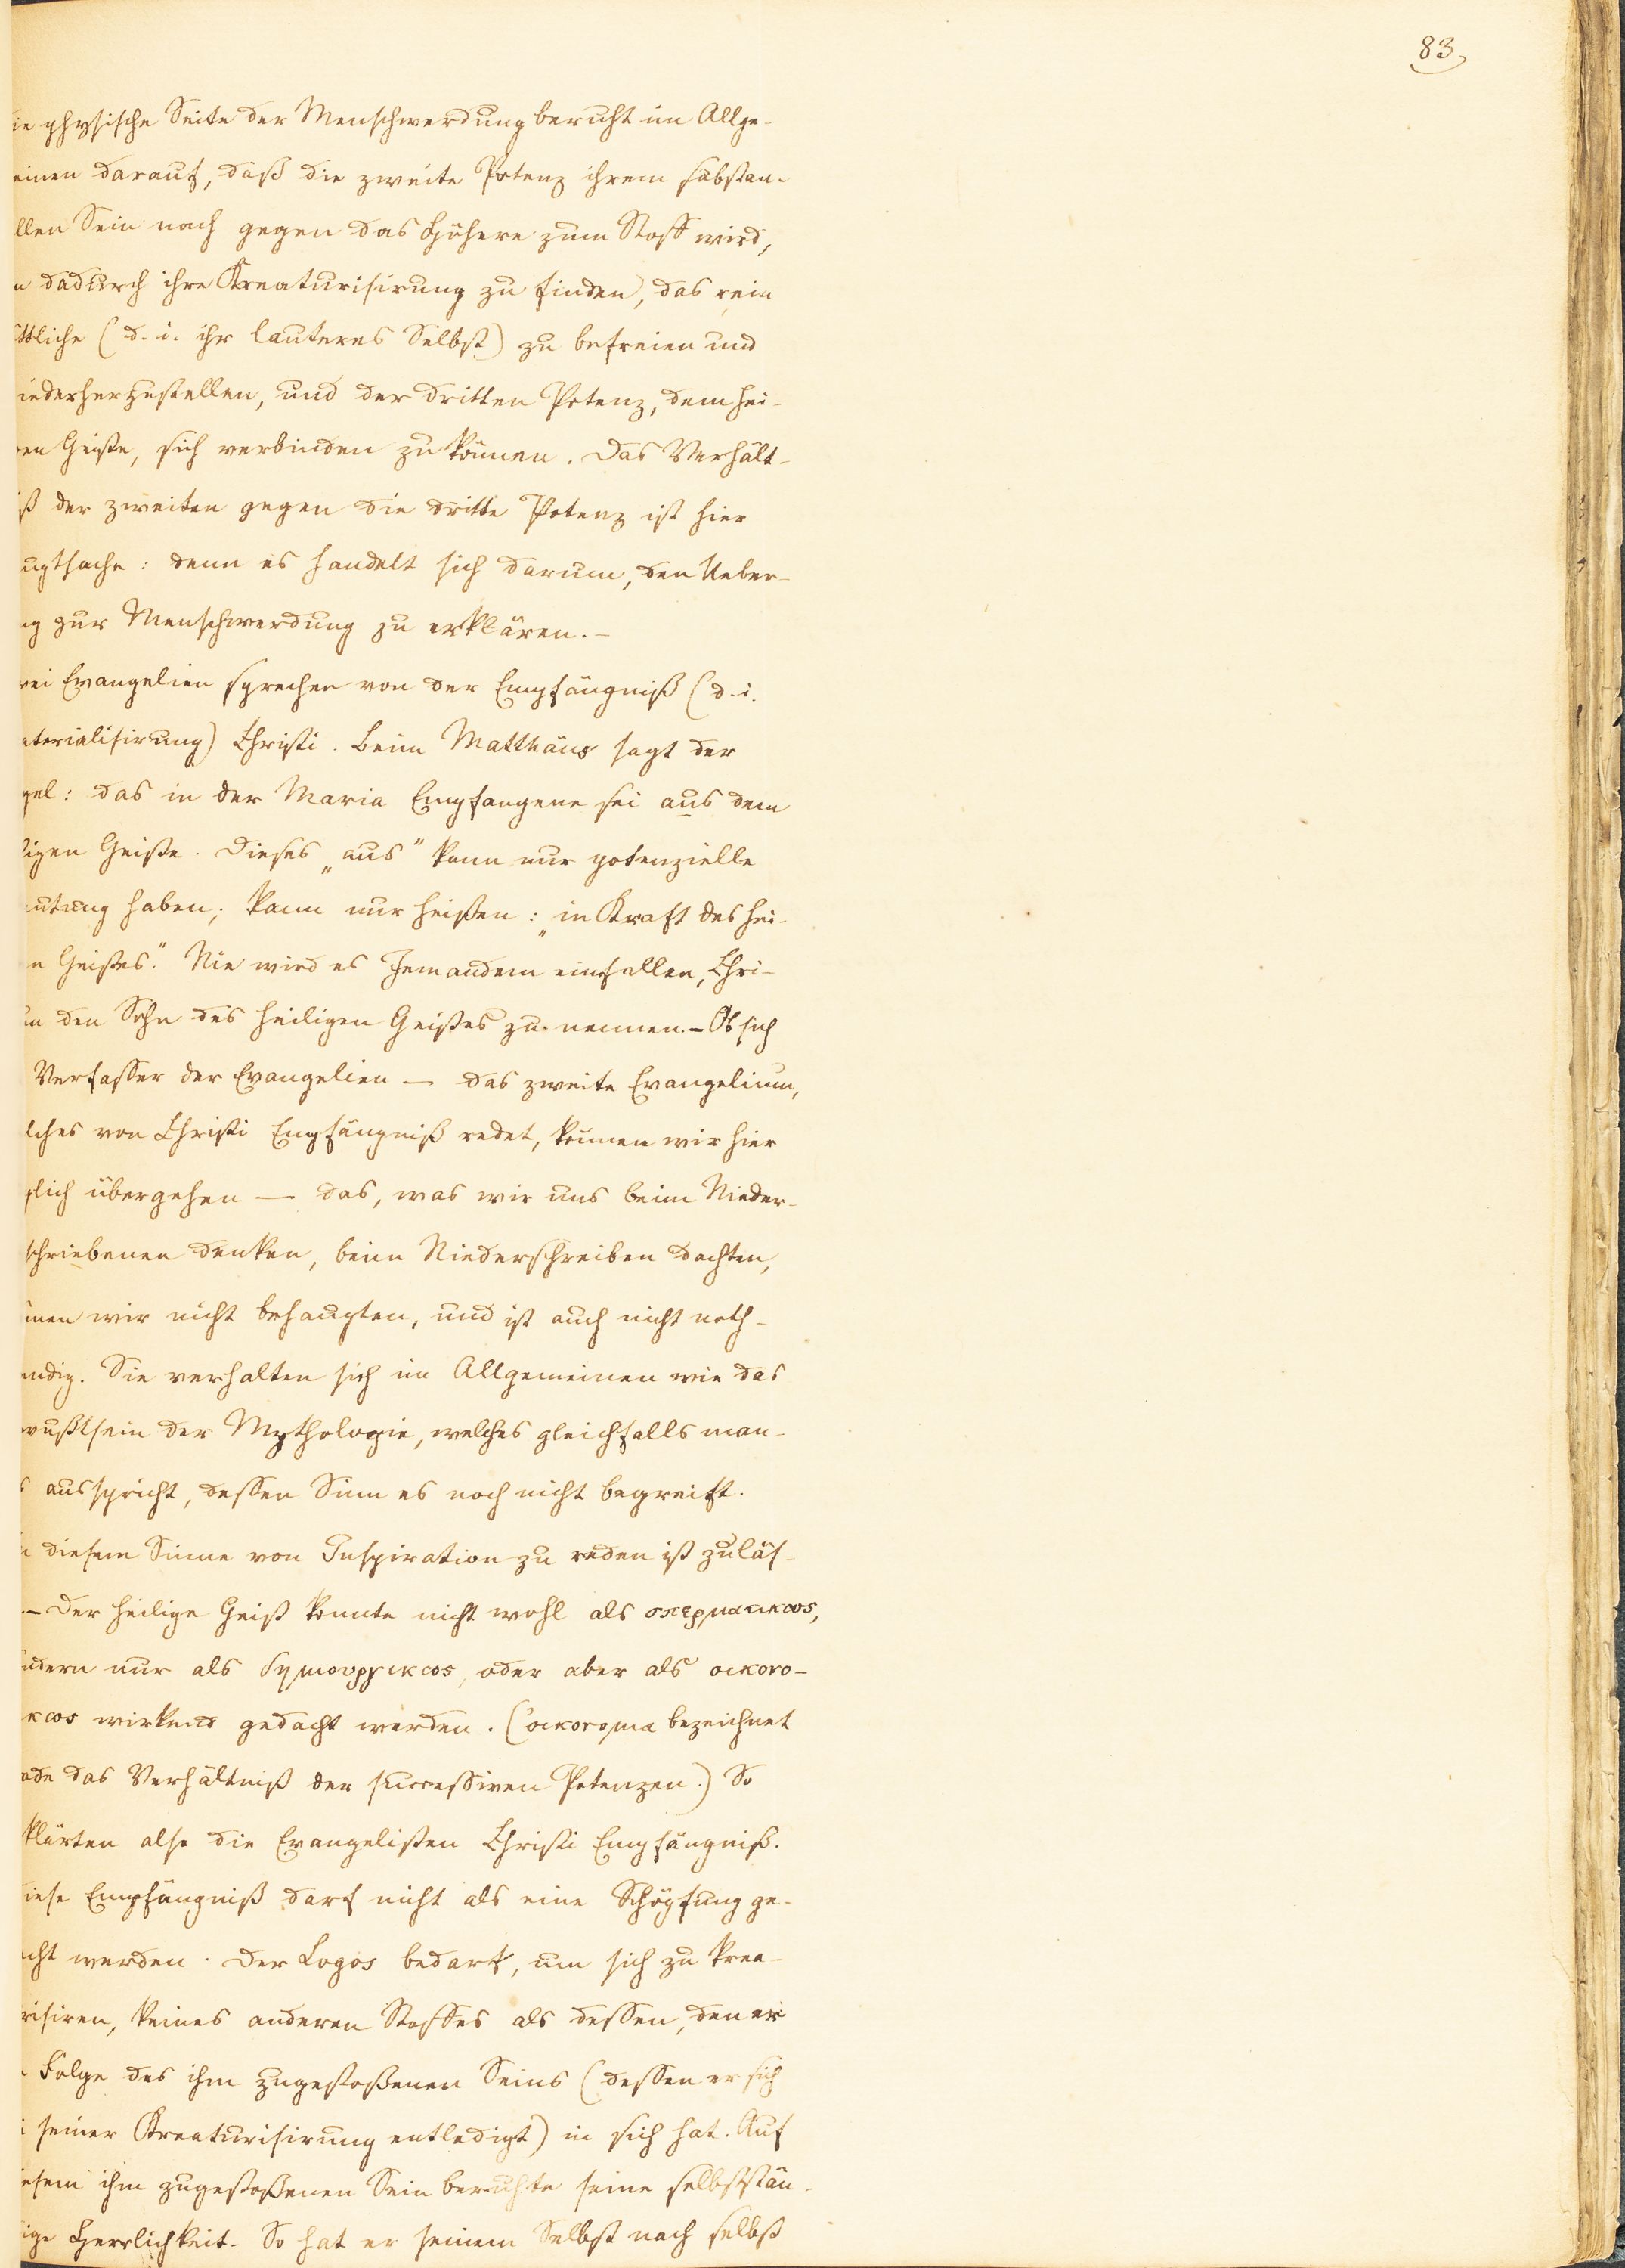 83.
ie physische Seite der Menschwerdung beruht im Allge-
einen darauf, daß die zweite Potenz ihrem substan-
llen Sein nach gegen das Höhere zum Stoff wird,
n dadurch ihre Kreaturisirung zu finden, das rein
ttliche (d. i. ihr lauteres Selbst) zu befreien und
iederherzustellen, und der dritten Potenz, dem hei-
en Geiste, sich verbinden zu können. Das Verhält-
iß der zweiten gegen die dritte Potenz ist hier
uptsache: denn es handelt sich darum, den Ueber-
ng zur Menschwerdung zu erklären. –
wei Evangelien sprechen von der Empfängniß (d. i.
aterialisirung) Christi. Beim Matthäus sagt der
gel: das in der Maria Empfangene sei aus dem
ligen Geiste. Dieses „aus“ kann nur potenzielle
eutung haben; kann nur heißen: „in Kraft des hei-
n Geistes.“ Nie wird es Jemandem einfallen, Chri-
um den Sohn des heiligen Geistes zu nennen. – Ob sich
Verfasser der Evangelien — das zweite Evangelium,
lches von Christi Empfängniß redet, können wir hier
glich übergehen — das, was wir uns beim Nieder-
schriebenen denken, beim Niederschreiben dachten,
nnen wir nicht behaupten, und ist auch nicht noth-
endig. Sie verhalten sich im Allgemeinen wie das
wußtsein der Mythologie, welches gleichfalls man-
s ausspricht, dessen Sinn es noch nicht begreift.
n diesem Sinne von Inspiration zu reden ist zuläs-
. – Der heilige Geist konnte nicht wohl als σπερματικως,
ndern nur als δημιουργικως, oder aber als οικονο-
κως wirkend gedacht werden. (οικονομια bezeichnet
ade das Verhältniß der successiven Potenzen.) So
klärten also die Evangelisten Christi Empfängniß.
iese Empfängniß darf nicht als eine Schöpfung ge-
cht werden. Der Logos bedarf, um sich zu krea-
risiren, keines anderen Stoffes als dessen, den er
Folge des ihm zugestoßenen Seins (dessen er sich
i seiner Kreaturisirung entledigt) in sich hat. Auf
esem ihm zugestoßenen Sein beruhte seine selbststän-
ige Herrlichkeit. So hat er seinem Selbst nach selbst